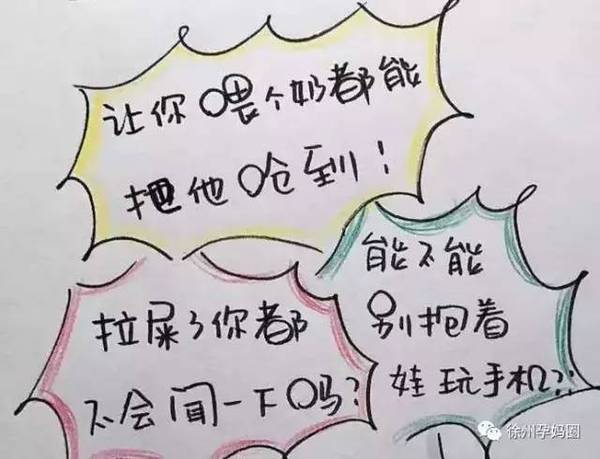 让你喂个奶都能
把他呛到！
能不能
别抱着
娃玩手机?!
拉屎了你都
不会闻一下吗?
徐州孕妈圈